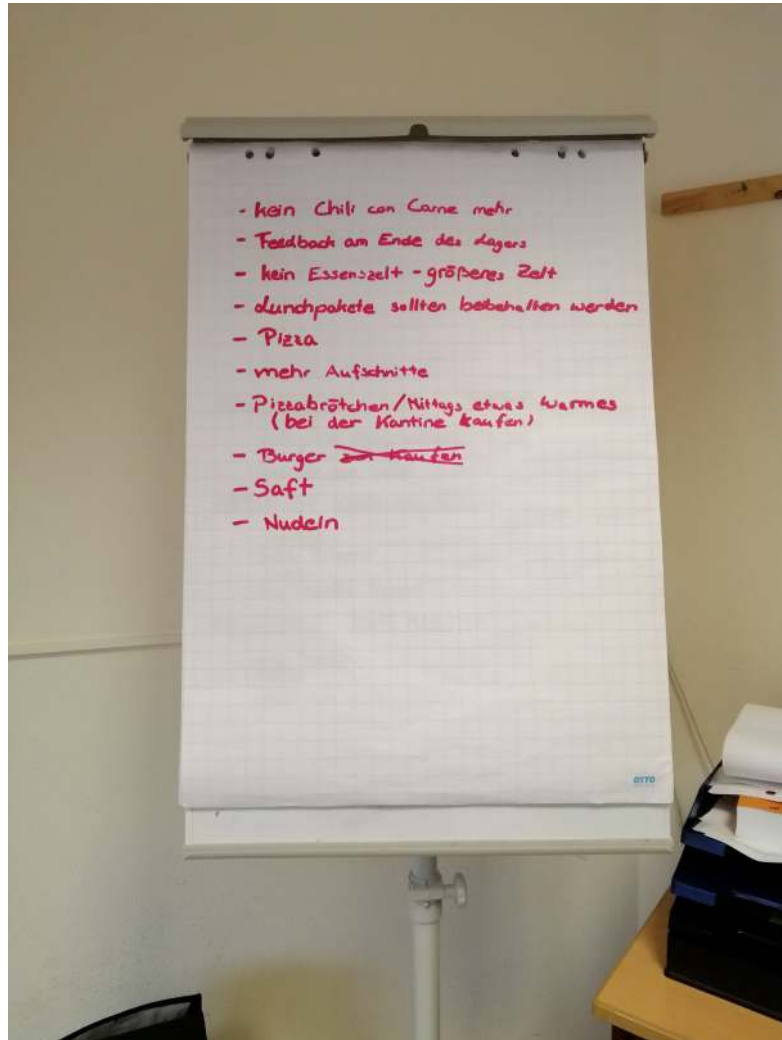 - kein Chili con Carne mehr
- Feedback am Ende des Lagers
- kein Essenszelt - größeres Zelt
- Lunchpakete sollten beibehalten werden
- Pizza
- mehr Aufschnitte
- Pizzabrötchen/Mittags etwas Warmes
(bei der Kantine kaufen)
- Burger kaufen
- Saft
- Nudeln
OTTO